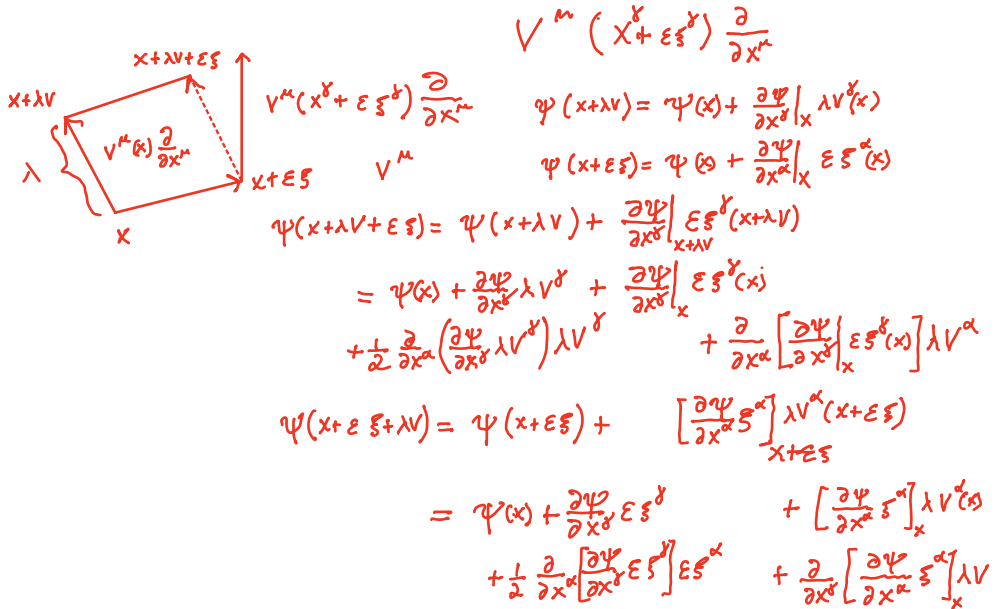 V^μ (x^γ + εξ^γ) ∂/∂x^μ
x+λv+εξ
x+λv
v^μ(x^γ + εξ^γ) ∂/∂x^μ
v^μ(x) ∂/∂x^μ
λ
v^μ
x+εξ
x
ψ(x+λv) = ψ(x) + ∂ψ/∂x^γ|_x λv^γ(x)
ψ(x+εξ) = ψ(x) + ∂ψ/∂x^α|_x εξ^α(x)
ψ(x+λv+εξ) = ψ(x+λv) + ∂ψ/∂x^γ|_{x+λv} εξ^γ(x+λv)
= ψ(x) + ∂ψ/∂x^γ λv^γ + ∂ψ/∂x^γ|_x εξ^γ(x)
+ 1/2 ∂/∂x^α (∂ψ/∂x^γ λv^γ) λv^γ + ∂/∂x^α [∂ψ/∂x^γ|_x εξ^γ(x)] λv^α
ψ(x+εξ+λv) = ψ(x+εξ) + [∂ψ/∂x^α ξ^α]_{x+εξ} λv^α(x+εξ)
= ψ(x) + ∂ψ/∂x^γ εξ^γ + [∂ψ/∂x^α ξ^α]_x λv^α(x)
+ 1/2 ∂/∂x^α [∂ψ/∂x^γ εξ^γ] εξ^α + ∂/∂x^γ [∂ψ/∂x^α ξ^α]_x λv